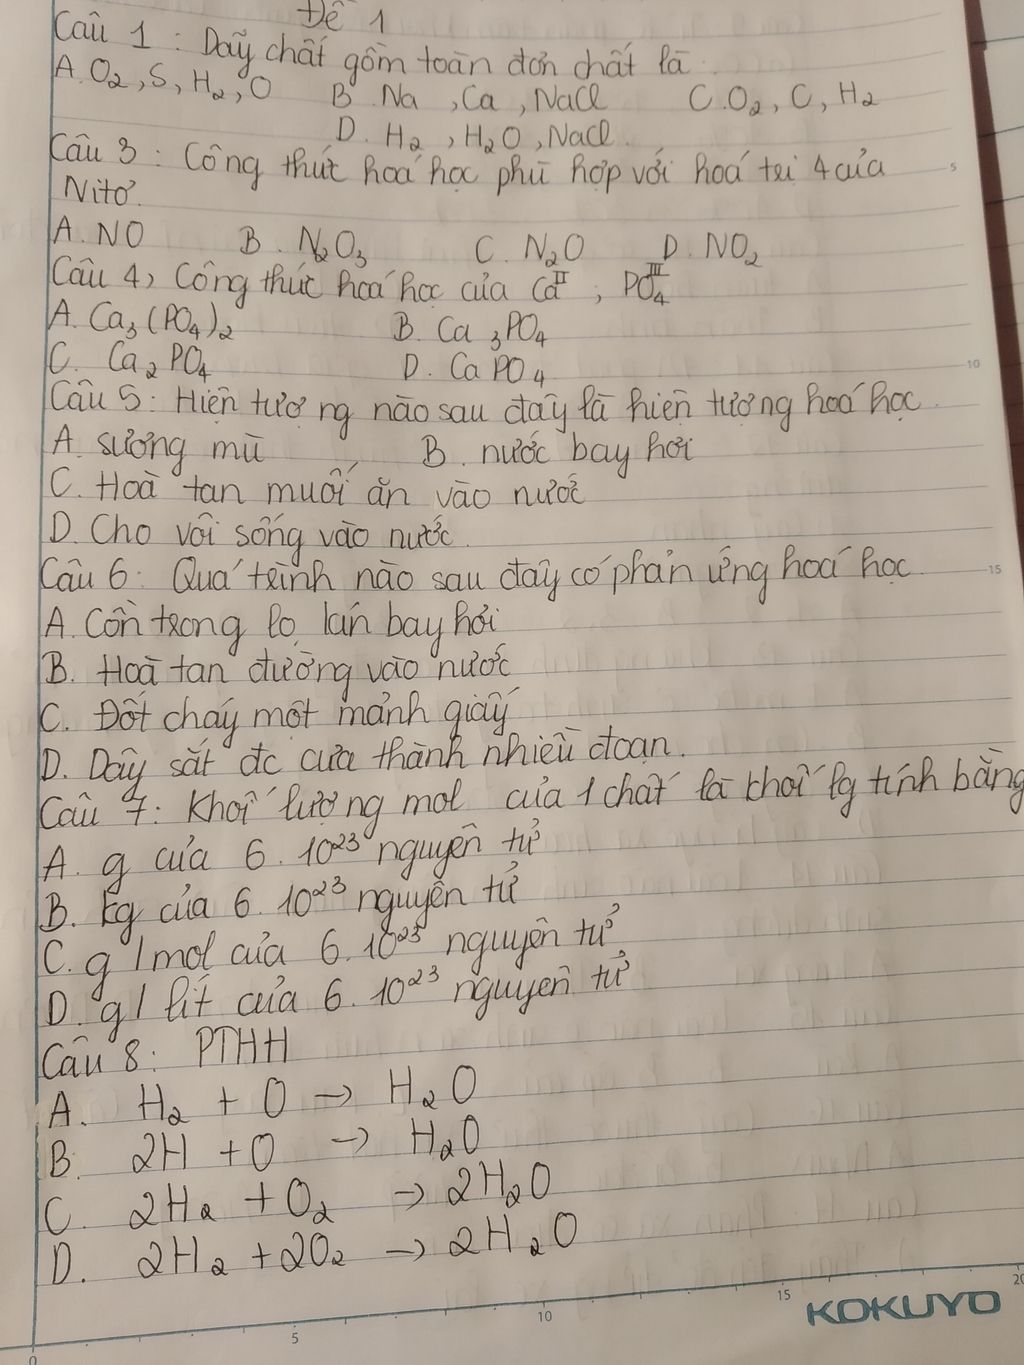 Đề 1
Câu 1 : Dãy chất gồm toàn đơn chất là
A. O₂, S, H₂, O B. Na, Ca, NaCl C. O₂, C, H₂
D. H₂, H₂O, NaCl.
Câu 3 : Công thức hoá học phù hợp với hoá trị 4 của
Nitơ.
A. NO B. N₂O₃ C. N₂O D. NO₂
Câu 4, Công thức hoá học của Ca^II, PO₄^III
A. Ca₃(PO₄)₂ B. Ca₃PO₄
C. Ca₂PO₄ D. CaPO₄
Câu 5 : Hiện tượng nào sau đây là hiện tượng hoá học.
A. sương mù B. nước bay hơi
C. Hoà tan muối ăn vào nước
D. Cho vôi sống vào nước.
Câu 6 : Quá trình nào sau đây có phản ứng hoá học
A. Cồn trong lọ lan bay hơi
B. Hoà tan đường vào nước
C. Đốt cháy một mảnh giấy
D. Dây sắt đc cưa thành nhiều đoạn.
Câu 7 : Khối lượng mol của 1 chất là khối lg tính bằng
A. g của 6.10²³ nguyên tử
B. kg của 6.10²³ nguyên tử
C. g/mol của 6.10²³ nguyên tử
D. g/lít của 6.10²³ nguyên tử
Câu 8 : PTHH
A. H₂ + O → H₂O
B. 2H + O → H₂O
C. 2H₂ + O₂ → 2H₂O
D. 2H₂ + 2O₂ → 2H₂O
5
10
15
0 5 10 15 20
KOKUYO